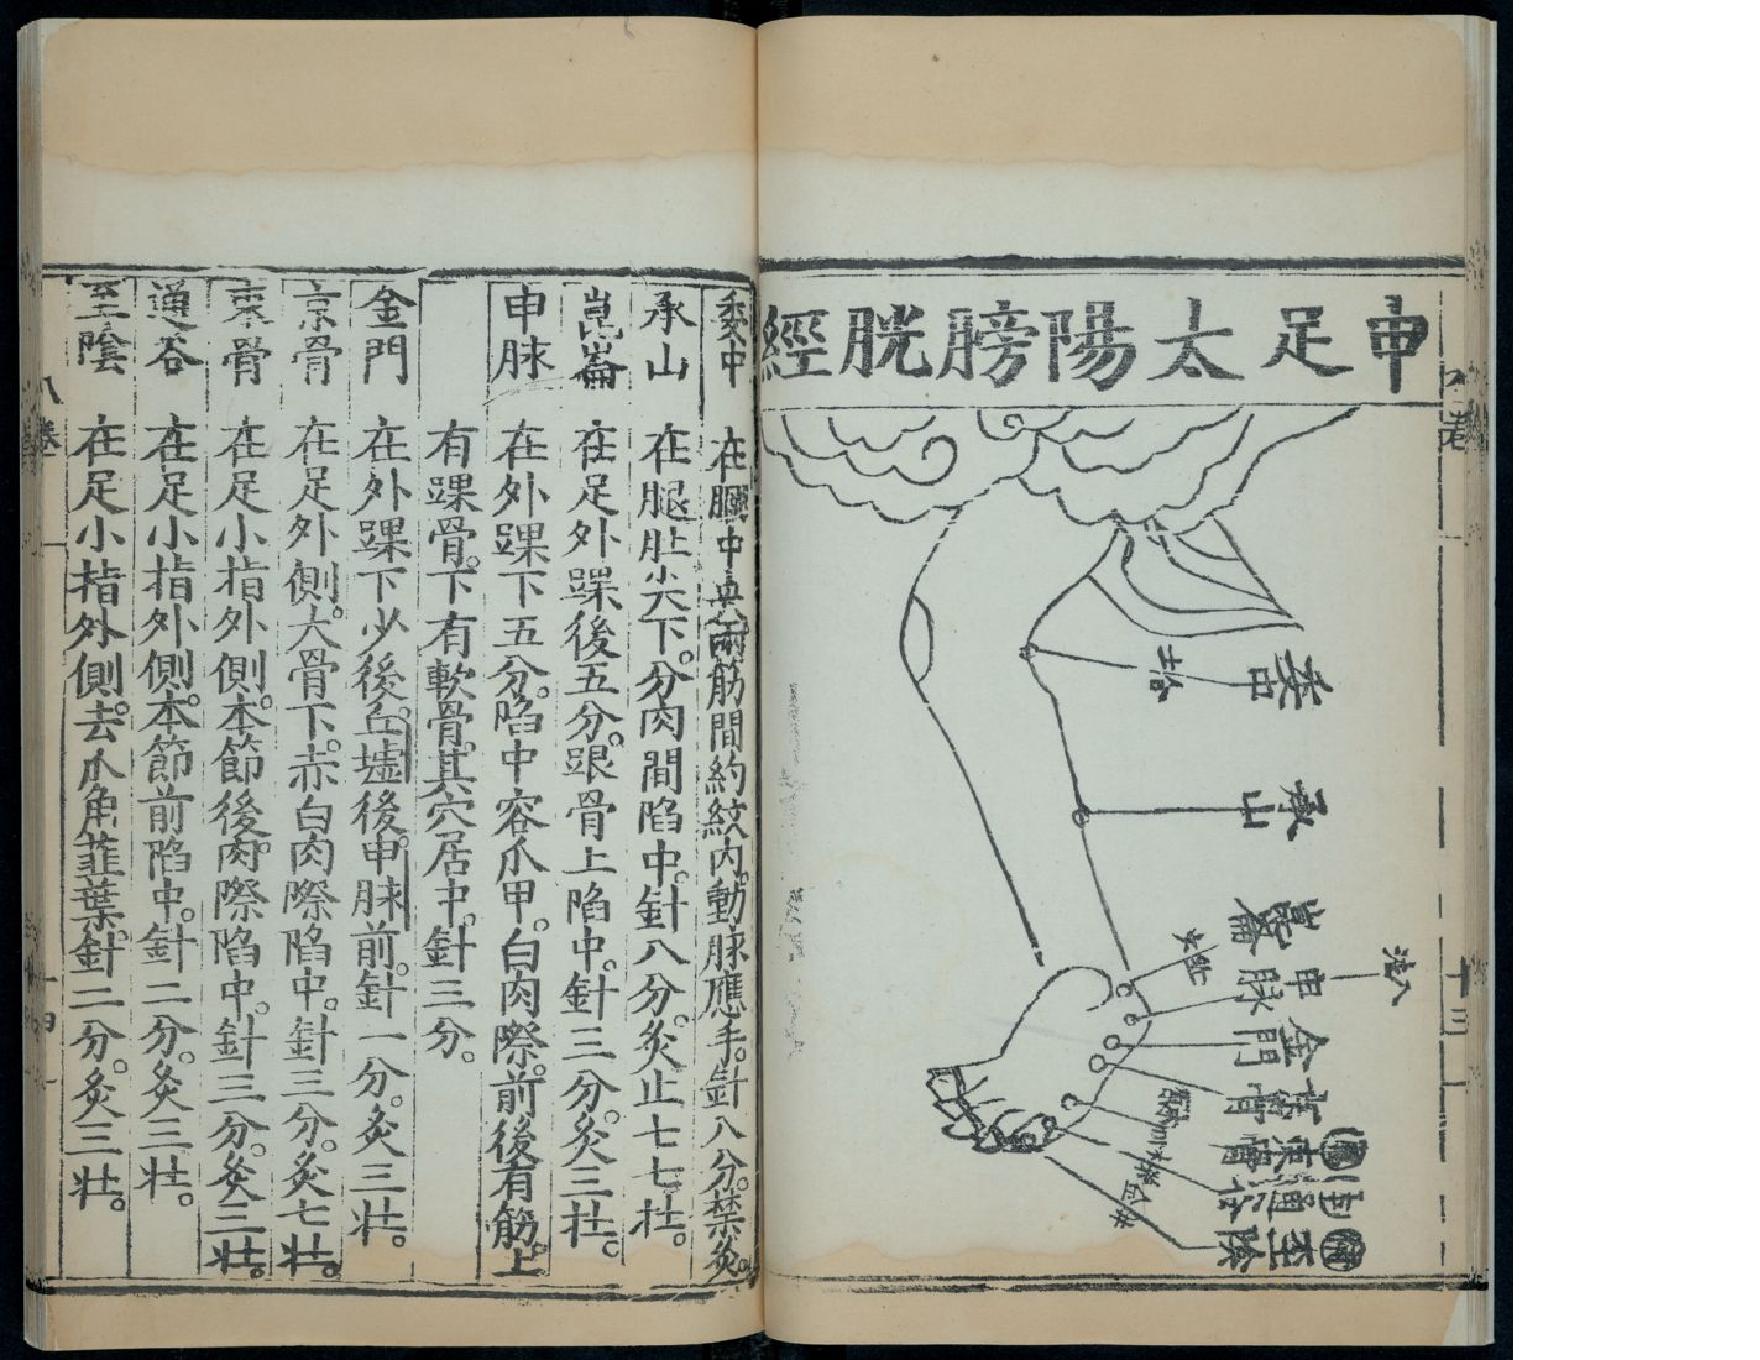 申足太陽膀胱經
委中
合
承山
崑崙
火
經
申脉
法八
金門
京骨
束骨
通谷
至陰
井
十三
委中 在膕中央兩筋間約紋内動脉應手。針八分。禁灸。
承山 在腿肚尖下。分肉間陷中。針八分。灸止七七壯。
崑崙 在足外踝後五分。跟骨上陷中。針三分。灸三壯。
申脉 在外踝下五分。陷中容爪甲。白肉際。前後有筋。上
有踝骨。下有軟骨。其穴居中。針三分。
金門 在外踝下少後。丘墟後。申脉前。針一分。灸三壯。
京骨 在足外側。大骨下。赤白肉際陷中。針三分。灸七壯。
束骨 在足小指外側。本節後。肉際陷中。針三分。灸三壯。
通谷 在足小指外側。本節前陷中。針二分。灸三壯。
至陰 在足小指外側。去爪角韮葉。針二分。灸三壯。
八卷
十四